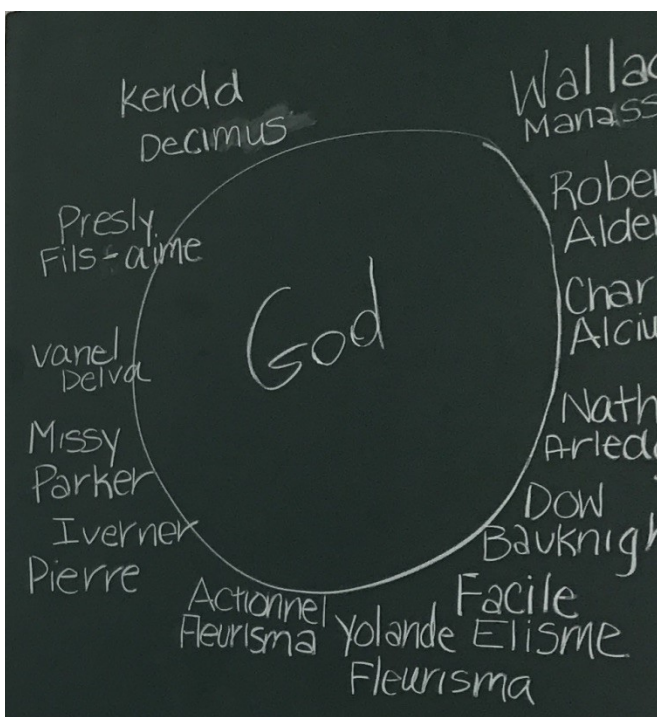 Kenold
Decimus
Presly
Fils-aime
Vanel
Delva
Missy
Parker
Iverner
Pierre
Actionnel
Fleurisma
Yolande
Fleurisma
Facile
Elisme
Dow
Bauknigh
Nath
Arled
Char
Alciu
Rober
Alder
Wallac
Manass
God